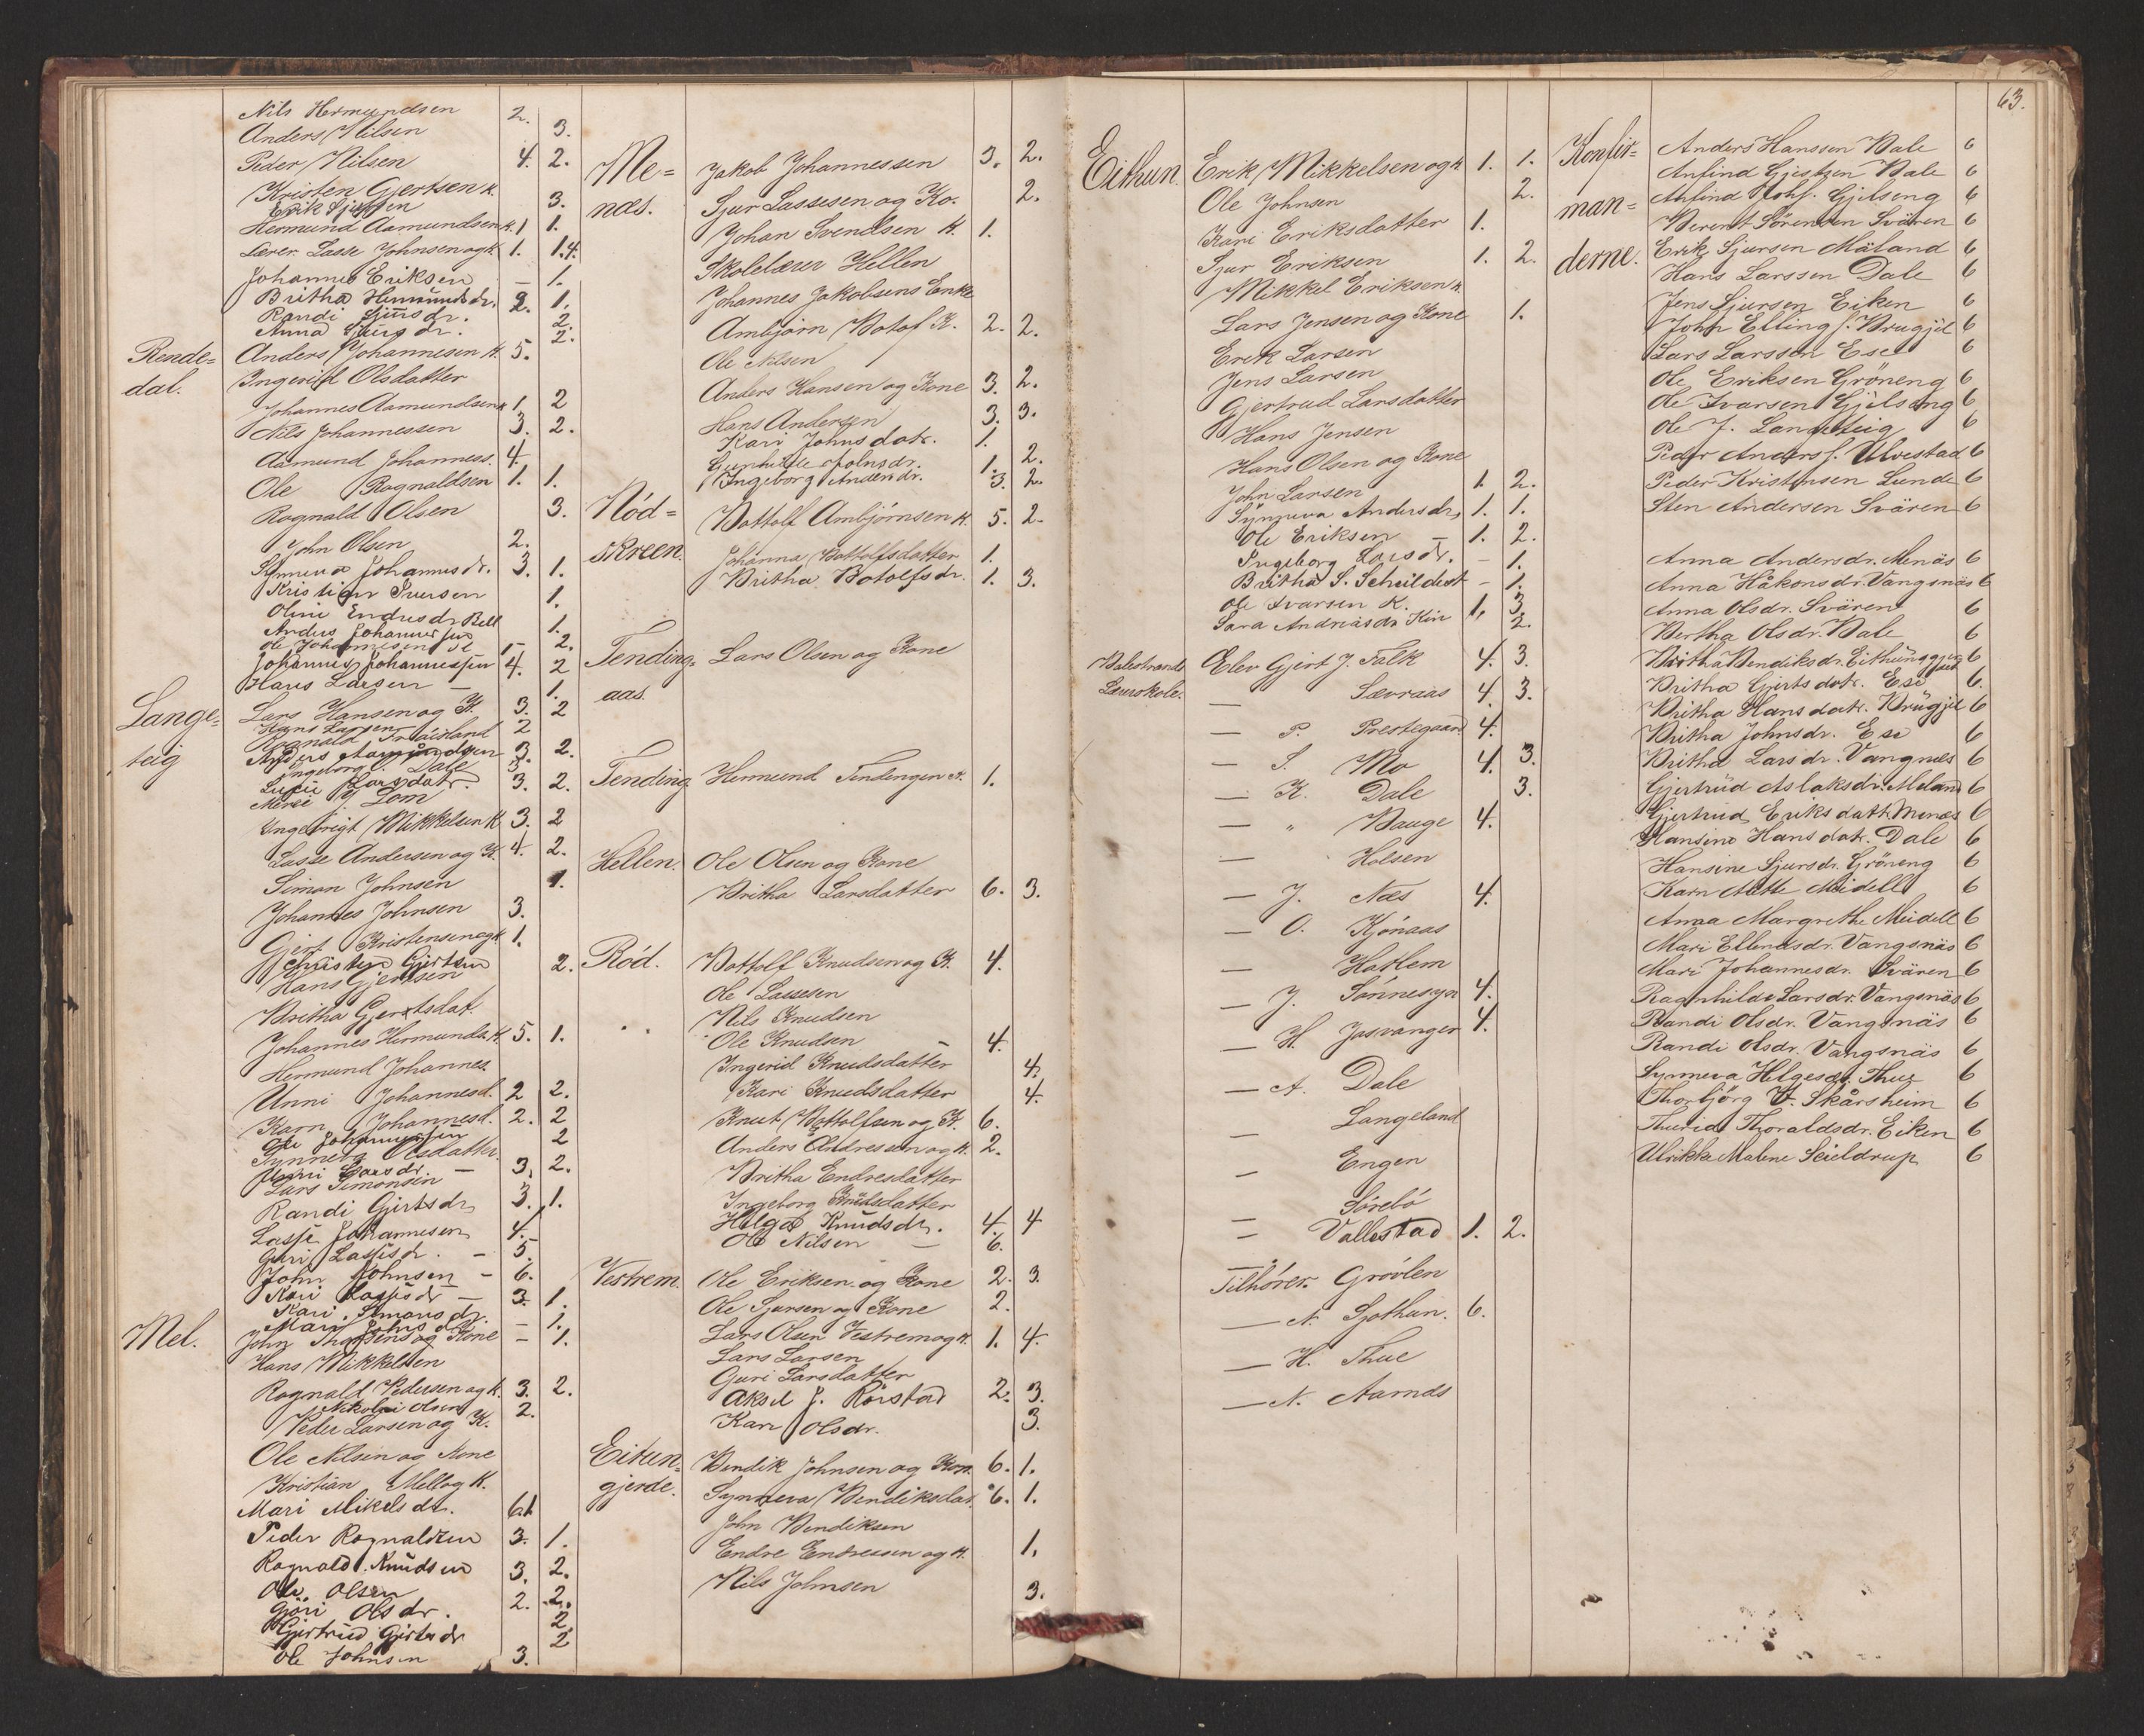 Nils Hermundsen 2.
Anders Nilsen 3.
Peder Nilsen 4. 2.
Kristen Gjertsen K. 3.
Erik
Hermund Aamundsen K. 1 1.
Lærer Lasse Johnsen og K. 1. 1.4.
Johannes Eriksen – 1.
Britha Hermunds dr. 2. 1.
Randi Sjurs dr. 2.
Anna Sjurs dr. 2.
Rende= Anders Johannesen K. 5.
dal. Ingerid Olsdatter
Johannes Aamundsen K 1. 2
Nils Johannessen 3. 2.
Aamund Johanness. 4.
Ole Rognaldsen 1. 1.
Rognald Olsen 3.
John Olsen 2.
Synneva Johannesdr. 3. 1.
Kristian Iversen 1.
Oline Endresdr. Bell
Anders Johannesen 1.
Ole Johannesen 2.
Johannes Johannessen 4. 2
Hans Larsen – 1.
Lange= Lars Hansen og K. 3. 2
Hans Larsen 2
Rognald
teig Anders 3. 2.
Ingeborg O. Dale 3.
Larsdatr. 3. 2.
J. Lom
Ingebrigt Mikkelsen K 3. 2
Lasse Andersen og K. 4. 2.
Simon Johnsen 1.
Johannes Johnsen 3.
Gjert Kristensen og K 1.
Christen Gjertsen 2.
Hans Gjertsen
Britha Gjertsdat.
Johannes Hermunds. K. 5. 1.
Hermund Johannes.
Unni Johannesd. 2 2.
Karn Johannesd. 2. 2
Ole Johannessen 2
Synneva Olsdatter.
Larsdr. – 3. 2.
Lars Simonsen
Randi Gjertsdr 3. 1.
Lasse Johannesen 4.
Guri Lassesdr. – 5.
John Johnsen – 6.
Kari Lassesdr – 3. 1.
Kari Simonsdr. – 1.
Mari Johnsdr.
Mel. John Thorsens og Kone – 1.
Hans Mikkelsen
Rognald Pedersen og K. 3. 2.
Nikolai Olsen 2.
Peder Larsen og K.
Ole Nilsen og Kone
Kristian Mell og K.
Mari Mikelsdr. 6.1
Peder Rognaldsen 3. 1.
Rognald Knudsen 3. 2.
Ole Olsen
Gjöri Olsdr. 2. 2.
Gjertrud Gjertsdr 2
Ole Johnsen 3. 2
Me= Jakob Johannessen 3. 2.
næs. Sjur Lassesen og Ko. 2.
Johan Svendsen K. 1.
Skolelærer Hellen
Johannes Jakobsens Enke
Ambjørn Botof. K. 2. 2.
Ole Nilsen
Anders Hansen og Kone 3. 2.
Hans Andersen 3. 3.
Kari Johnsdatr. 1.
Gunhilde Johnsdr. 1. 2.
Ingeborg Andersdr. 3. 2.
Nöd= Bottolf Ambjørnsen K. 5. 2.
skreen. Johanna Bottolfsdatter 1.
Britha Botolfsdr. 1. 3.
Tending= Lars Olsen og Kone
aas.
Tending. Hermund Tendingen K. 1.
Hellen. Ole Olsen og Kone
Britha Larsdatter 6. 3.
Röd. Bottolf Knudsen og K. 4.
Ole Lassesen
Nils Knudsen
Ole Knudsen – 4.
Ingerid Knudsdatter 4.
Kari Knudsdatter 4.
Knut Bottolfsen og K. 6.
Anders Endresen og K. 2.
Britha Endresdatter
Ingeborg Knudsdatter
Helga Knudsdr. 4. 4
Ole Nilsen – 6.
Vestrem. Ole Eriksen og Kone 2. 3.
Ole Sjursen og Kone 2.
Lars Olsen Vestrem og K. 1. 4.
Lars Larsen
Guri Larsdatter
Aksel J. Rörstad 2. 3.
Kari Olsdr. 3.
Eitun= Bendik Johnsen og Kon. 6. 1.
gjerde. Synneva Bendiksdat. 6. 1.
John Bendiksen
Endre Endresen og K. 1.
Nils Johnsen 3.
63.
Eithun. Erik Mikkelsen og K. 1. 1.
Ole Johnsen 2.
Kari Eriksdatter 1.
Sjur Eriksen 1. 2.
Mikkel Eriksen K.
Lars Jensen og Kone 1.
Erik Larsen
Jens Larsen
Gjertrud Larsdatter
Hans Jensen
Hans Olsen og Kone
John Larsen 1. 2.
Synneva Andersdr. 1. 1.
Ole Eriksen – 1. 2.
Ingeborg Larsdr. – 1.
Britha S. – 1.
Ole Ivarsen K. 1. 3.
Sara Andreasdr 2.
Balestrands Elev Gjert J. Falk 4. 3.
Lærerskole. — Sævraas 4. 3.
— P. Prestegaard 4.
— S. Mo 4. 3.
— K. Dale 3.
— " Bauge 4.
— Holsen
— J. Næs 4.
— O. Kjönaas
— Hatlem
— J. Sönnesyn 4.
— H. Josvanger 4.
— A. Dale
— Langeland
— Engen
— Sörebö
— Vallestad 1. 2.
Tilhörer. Gröolen
— N. Sjothun. 6.
— H. Thue
— N. Aarnds
Konfir= Anders Hanssen Bale 6
Anfind Gjertsen Bale 6
man= Anfind Johs. Gjelseng 6
Berent Sörensen Svären 6
derne. Erik Sjursen Mäland 6
Hans Larssen Dale 6
Jens Sjursen Eiken 6
John Ellings. Brugjil 6
Lars Larsson Ese 6
Ole Eriksen Gröneng 6
Ole Ivarsen Gjelseng 6
Ole J. Langeteig 6
Peder Anders s. Ulvestad 6
Peder Kristensen Lunde 6
Sten Andersen Svären 6
Anna Andersdr. Menäs 6
Anna Håkonsdr. Vangsnäs 6
Anna Olsdr. Svären 6
Bertha Olsdr. Bale 6
Britha Bendiksdr. Eithungjerde 6
Britha Gjertsdatr. Ese 6.
Britha Hansdatr. Brügjil 6
Britha Johnsdr. Ese 6
Britha Larsdr. Vangnæs 6
Gjertrüd Aslaksdr. Meland 6
Gjertrud Eriksdatt. Menæs 6
Hansine Hansdatr. Dale 6
Hansine Sjursdr. Gröneng 6
Karn Mette Meidell 6
Anna Margrethe Meidell 6
Mari Ellendsdr. Vangsnäs 6
Mari Johannesdr. Svären 6
Ragnhilde Larsdr. Vangsnäs 6
Randi Olsdr. Vangsnäs 6
Randi Olsdr. Vangsnäs 6
Synneva Helgesdr. Thue 6
Thorbjörg V. Skårsheim 6
Thurid Thoraldsdr. Eiken 6
Ulrikke Malene Seieldrup 6